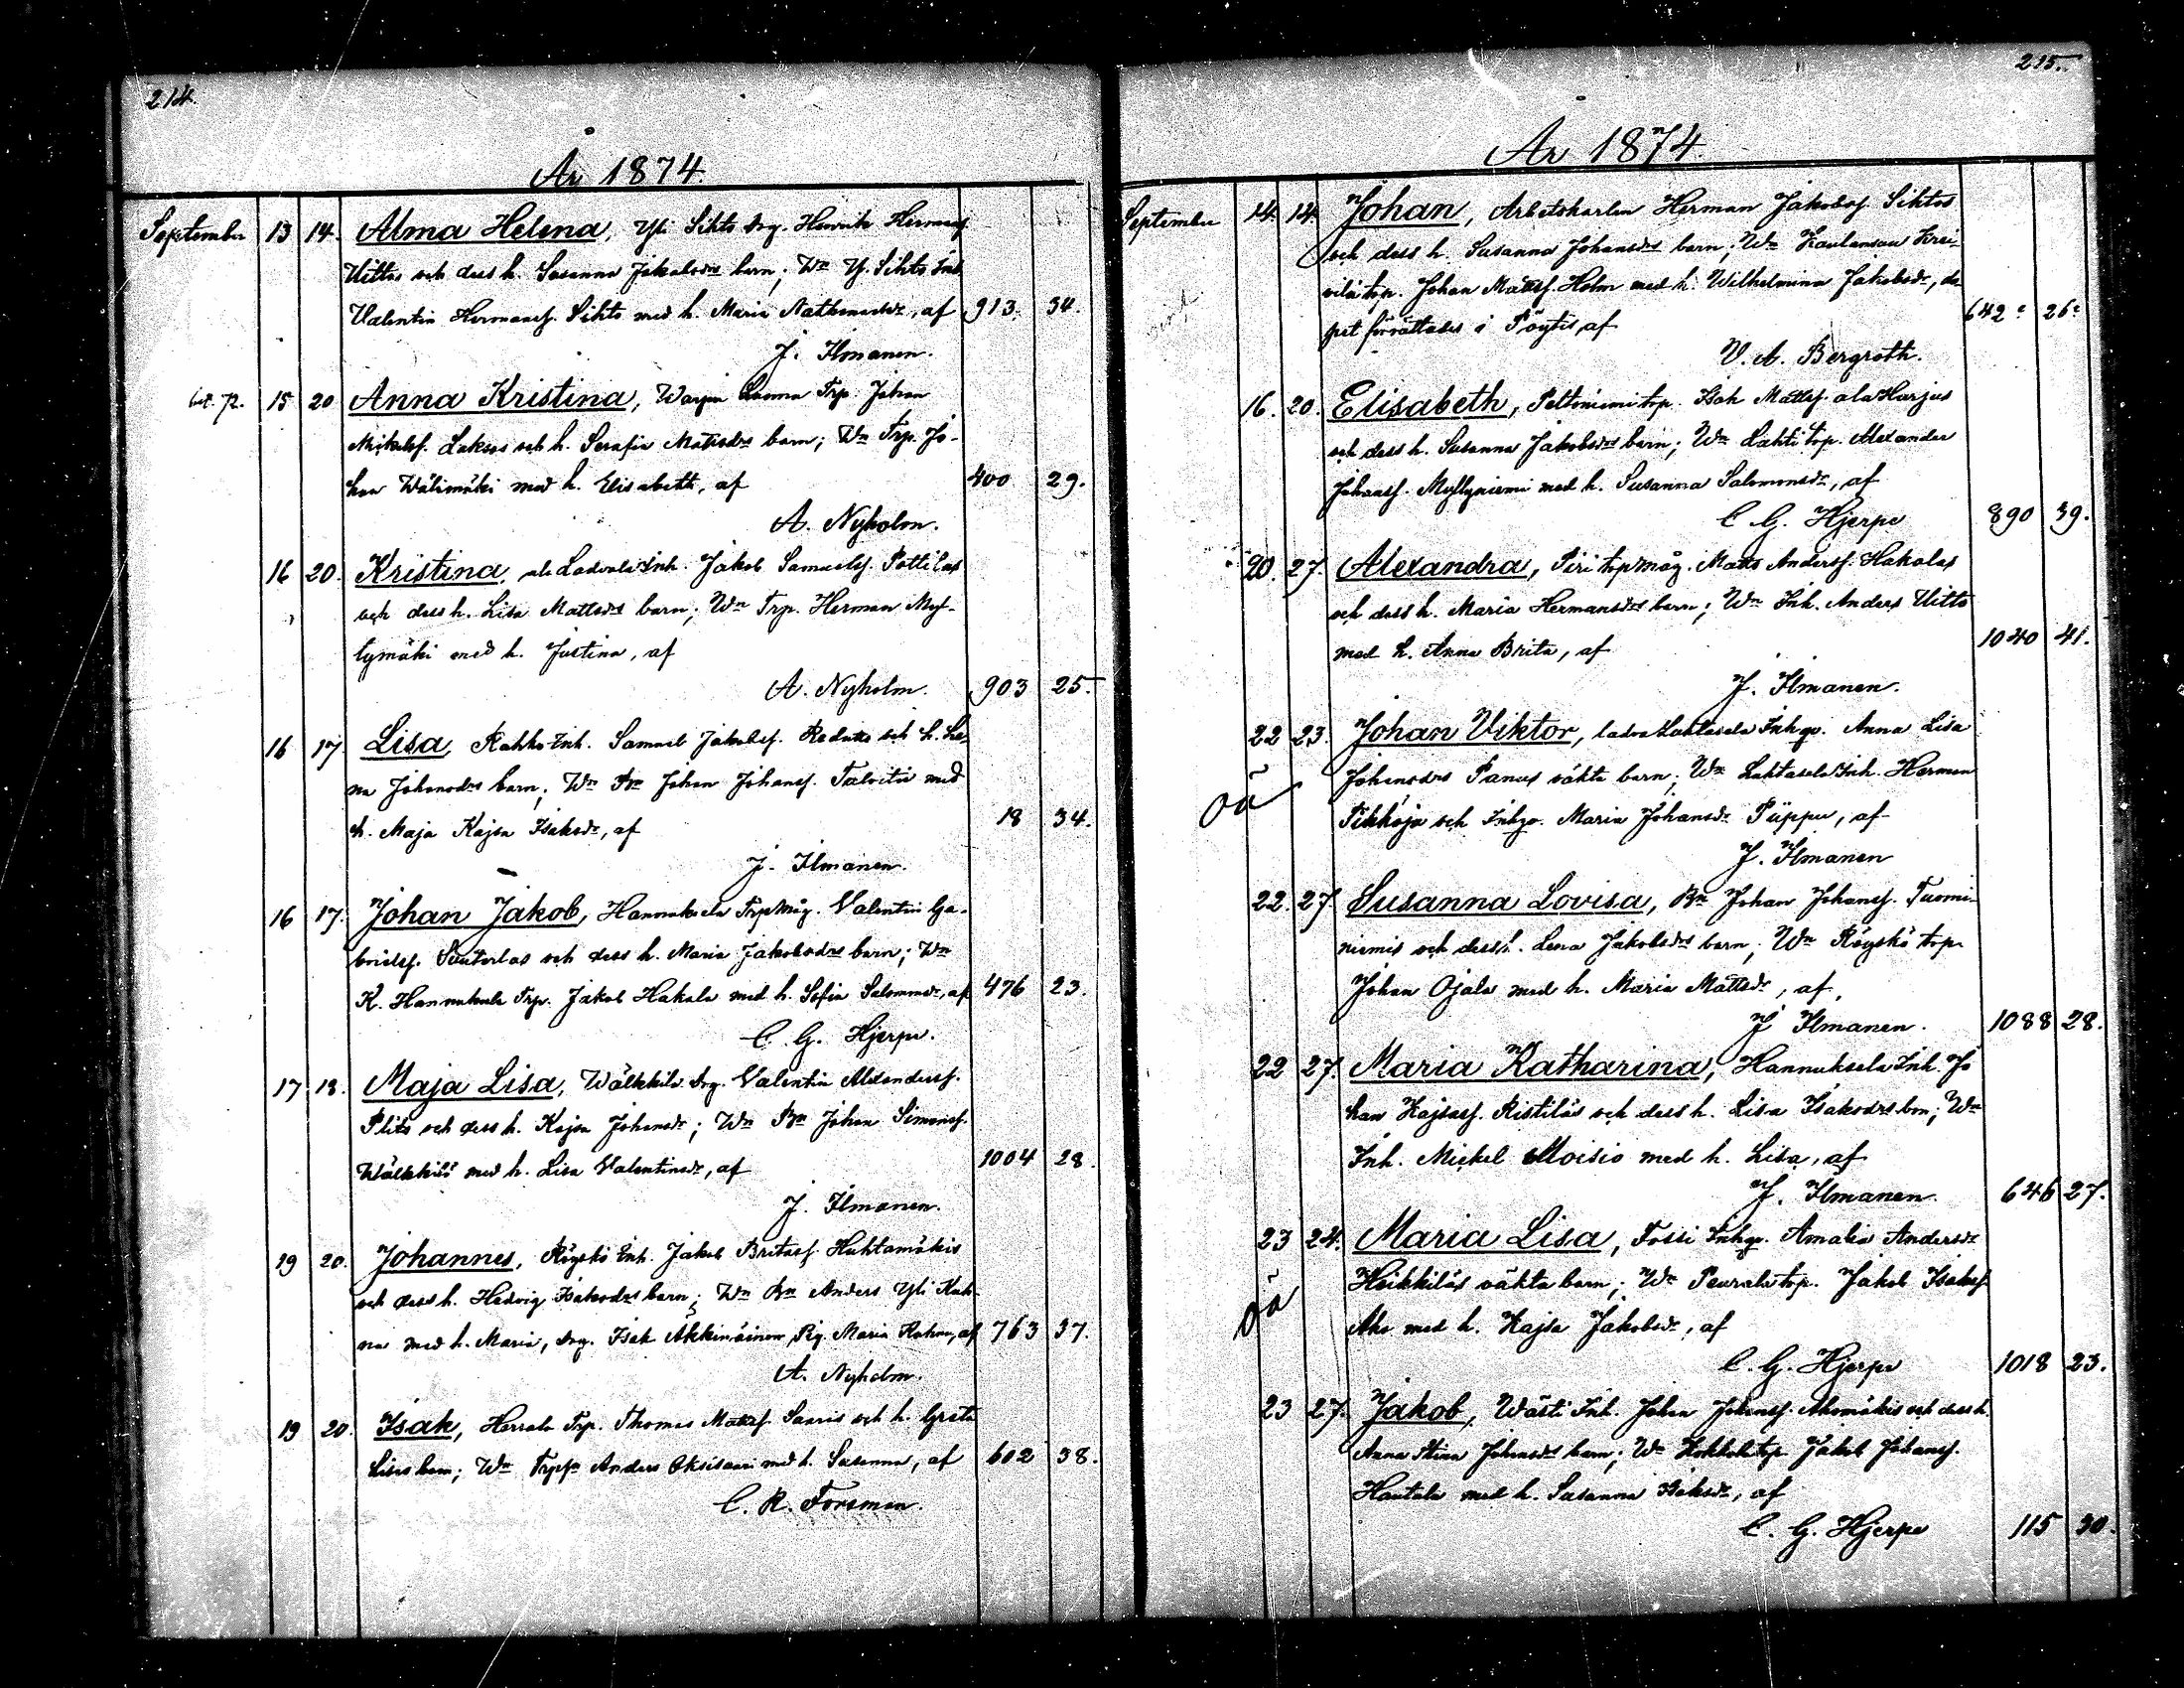 214.
År 1874.
September 13 14. Alma Helena, Yli Sihto drg. Henrik Hermansf.
Uittos och dess h. Susanna Jakobsdrs barn; Wn Y. Sihto Inh.
Valentin Hermansf. Sihto med h. Maria Nathanaelsdr, af 913. 34.
J. Ilmanen.
15 20 Anna Kristina, Warpu Luoma Trp. Johan
Mikelsf. Laksos och h. Serafia Mattsdrs barn; Wn Trp. Jo-
han Wälimäki med h. Elisabeth, af 400 29.
A. Nyholm.
16 20. Kristina, Ladvala Inh. Jakob Samuelsf. Pottilas
och dess h. Lisa Mattsdrs barn; Wn Trp. Herman Myl-
lymäki med h. Justina, af
A. Nyholm. 903 25.
16 17 Lisa, Rahko Inh. Samuel Jakobsf. och h. Le-
na Johansdrs barn; Wn Bn Johan Johansf. Talvitie med
h. Maja Kajsa Isaksdr, af 18 34.
J. Ilmanen.
16 17. Johan Jakob, Hannuksela Trpmåg. Valentin Ga-
brielsf. och dess h. Maria Jakobsdrs barn; Wn
K. Hannuksela Trp. Jakob Hakala med h. Sofia Salomonsdr, af 476 23.
C. G. Hjerpe.
17 18. Maja Lisa, Wälkkilä drg. Valentin Alexandersf.
och dess h. Kajsa Johansdr; Wn Bn Johan Simonsf.
Wälkkilä med h. Lisa Valentinsdr, af 1004 28.
J. Ilmanen.
19 20. Johannes, Röyskö Inh. Jakob Britasf. Huhtamäkis
och dess h. Hedvig Isaksdrs barn; Wn Bn Anders Yli Rah-
na med h. Maria, drg. Isak Akkimäinen, Pig. Maria Rahna, af 763 37.
A. Nyholm.
19 20. Isak, Herrala Trp. Thomas Mattsf. Saaris och h. Greta
Lisas barn; Wn Trpsn Anders Oksisaari med h. Susanna, af 602 38.
C. R. Forsman.
215.
År 1874.
September 14. 14. Johan, Arbetskarlen Herman Jakobsf. Sihtos
och dess h. Susanna Johansdrs barn; Wn Kaulansuu Krei-
vilä trp. Johan Mattsf. Holm med h. Wilhelmina Jakobsdr, do-
pet förrättades i Pöytis, af 642 26
V. A. Bergroth.
16. 20. Elisabeth, Peltoniemi trp. Isak Mattsf. ala Harjus
och dess h. Susanna Jakobsdrs barn; Wn Lahti trp. Alexander
Johansf. Myllyniemi med h. Susanna Salomonsdr, af
C. G. Hjerpe 890 39.
20. 27. Alexandra, Piri trpmåg. Matts Andersf. Hakalas
och dess h. Maria Hermansdrs barn; Wn Inh. Anders Uitto
med h. Anna Brita, af 1040 41.
J. Ilmanen.
22 23. Johan Viktor, Ladva Luhtasela Inhqv. Anna Lisa
Johansdrs Panus oäkta barn; Wn Luhtasela Inh. Herman
oä
Pikkoja och Inhqv. Maria Johansdr Piippu, af
J. Ilmanen
22. 27. Susanna Lovisa, Bn Johan Johansf. Tuomi-
niemis och dess h. Lena Jakobsdrs barn; Wn Röyskö trp.
Johan Ojala med h. Maria Mattsdr, af
J Ilmanen. 1088 28.
22 27. Maria Katharina, Hannuksela Inh. Jo
han Kajsasf. Ristiläs och dess h. Lisa Isaksdrs brn; Wn
Inh. Mickel Moisio med h. Lisa, af
J. Ilmanen. 646 27.
23 24. Maria Lisa, Tossi Inhqv. Amalia Andersdr
Heikkiläs oäkta barn; Wn Peurala trp. Jakob Isaksf.
oä
Aho med h. Kajsa Jakobsdr, af
C. G. Hjerpe 1018 23.
23 27. Jakob, Wästi Inh. Johan Johansf. Ahomäkis och dess h.
Anna Stina Johansdrs barn; Wn trp Jakob Johansf.
Hautala med h. Susanna Isaksdr, af
C. G. Hjerpe 115 30.